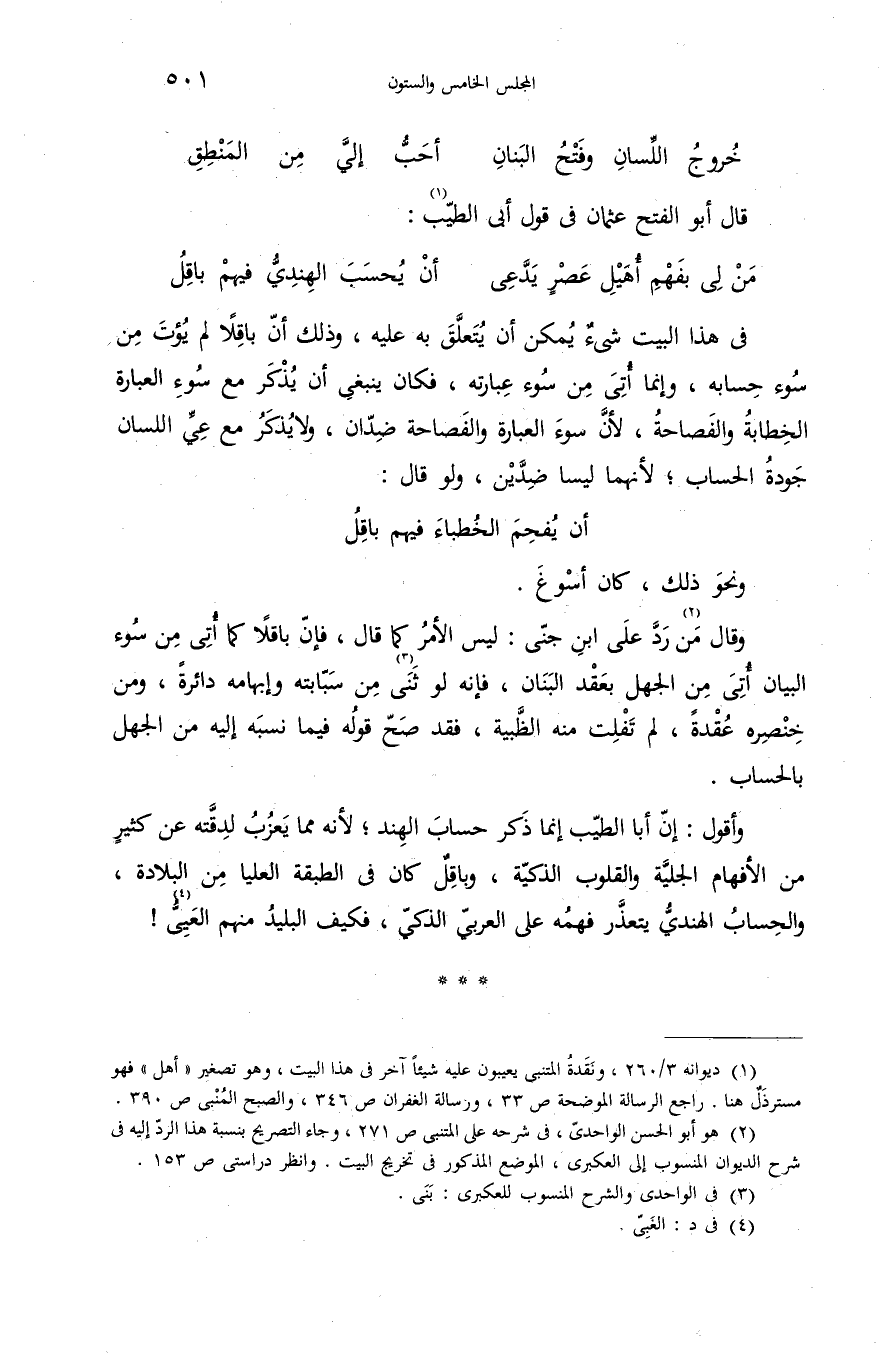 المجلس الخامس والستون ٥٠١
خُروجُ اللِّسانِ وفَتْحُ البَنانِ أحَبُّ إليَّ مِن المَنْطِقِ
قال أبو الفتح عثمان فى قول أبى الطيّب(١) :
مَنْ لِى بفَهْمِ أُهَيْلِ عَصْرٍ يَدَّعِى أنْ يُحسَبَ الهِندِيُّ فيهمْ باقِلُ
فى هذا البيت شىءٌ يُمكن أن يُتَعلَّقَ به عليه ، وذلك أنّ باقِلًا لم يُؤتَ مِن
سُوء حِسابه ، وإنما أُتِىَ مِن سُوء عِبارته ، فكان ينبغي أن يُذْكَر مع سُوءِ العبارة
الخِطابةُ والفَصاحةُ ، لأنَّ سوءَ العبارة والفَصاحة ضِدّان ، ولايُذكَرُ مع عِيِّ اللسان
جَودةُ الحساب ؛ لأنهما ليسا ضِدَّيْن ، ولو قال :
أن يُفحِمَ الخُطباءَ فيهم باقِلُ
ونحوَ ذلك ، كان أسْوغَ .
وقال مَن(٢) رَدَّ علَى ابنِ جنّى : ليس الأمرُ كما قال ، فإنّ باقلًا كما أُتِى مِن سُوء
البيان أُتِىَ مِن الجهل بعَقْد البَنان ، فإنه لو ثَنَى(٣) مِن سَبّابته وإبهامه دائرةً ، ومن
خِنْصِره عُقْدةً ، لم تَفْلِت منه الظَّبية ، فقد صَحّ قولُه فيما نسبَه إليه من الجهل
بالحساب .
وأقول : إنّ أبا الطيّب إنما ذَكر حسابَ الهِند ؛ لأنه مما يَعزُبُ لدِقَّته عن كثيرٍ
من الأفهام الجليَّة والقلوب الذكيّة ، وباقِلٌ كان فى الطبقة العليا مِن البلادة ،
والحِسابُ الهنديُّ يتعذَّر فهمُه على العربيّ الذكيّ ، فكيف البليدُ منهم العَيِىُّ(٤) !
* * *
(١) ديوانه ٢٦٠/٣ ، ونَقَدةُ المتنبى يعيبون عليه شيئاً آخر فى هذا البيت ، وهو تصغير « أهل » فهو
مسترذَلٌ هنا . راجع الرسالة الموضحة ص ٣٣ ، ورسالة الغفران ص ٣٤٦ ، والصبح المُنْبى ص ٣٩٠ .
(٢) هو أبو الحسن الواحدىّ ، فى شرحه على المتنبى ص ٢٧١ ، وجاء التصريح بنسبة هذا الردّ إليه فى
شرح الديوان المنسوب إلى العكبرى ، الموضع المذكور فى تخريج البيت . وانظر دراستى ص ١٥٣ .
(٣) فى الواحدى والشرح المنسوب للعكبرى : بَنَى .
(٤) فى د : الغَبِىّ .